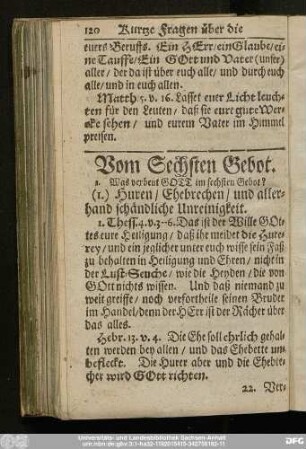 120 Kurtze Fragen über die
euers Beruffs. Ein HErr / ein Glaube / ei-
ne Tauffe / Ein GOtt und Vater (unser)
aller / der da ist über euch alle / und durch euch
alle / und in euch allen.
Matth. 5. v. 16. Lasset euer Licht leuch-
ten für den Leuten / daß sie eure gute Wer-
cke sehen / und euren Vater im Himmel
preisen.
Vom Sechsten Gebot.
1. Was verbeut GOTT im sechsten Gebot?
(1.) Huren / Ehebrechen / und aller-
hand schändliche Unreinigkeit.
1. Thess. 4. v. 3-6. Das ist der Wille GOt-
tes eure Heiligung / daß ihr meidet die Hure-
rey / und ein jeglicher unter euch wisse sein Faß
zu behalten in Heiligung und Ehren / nicht in
der Lust-Seuche / wie die Heyden / die von
GOtt nichts wissen. Und daß niemand zu
weit greiffe / noch vervortheile seinen Bruder
im Handel / denn der HErr ist der Rächer über
das alles.
Hebr. 13. v. 4. Die Ehe soll ehrlich gehal-
ten werden bey allen / und das Ehebette un-
befleckt. Die Hurer aber und die Ehebre-
cher wird GOtt richten.
22. Ver-
Universitäts- und Landesbibliothek Sachsen-Anhalt
DFG